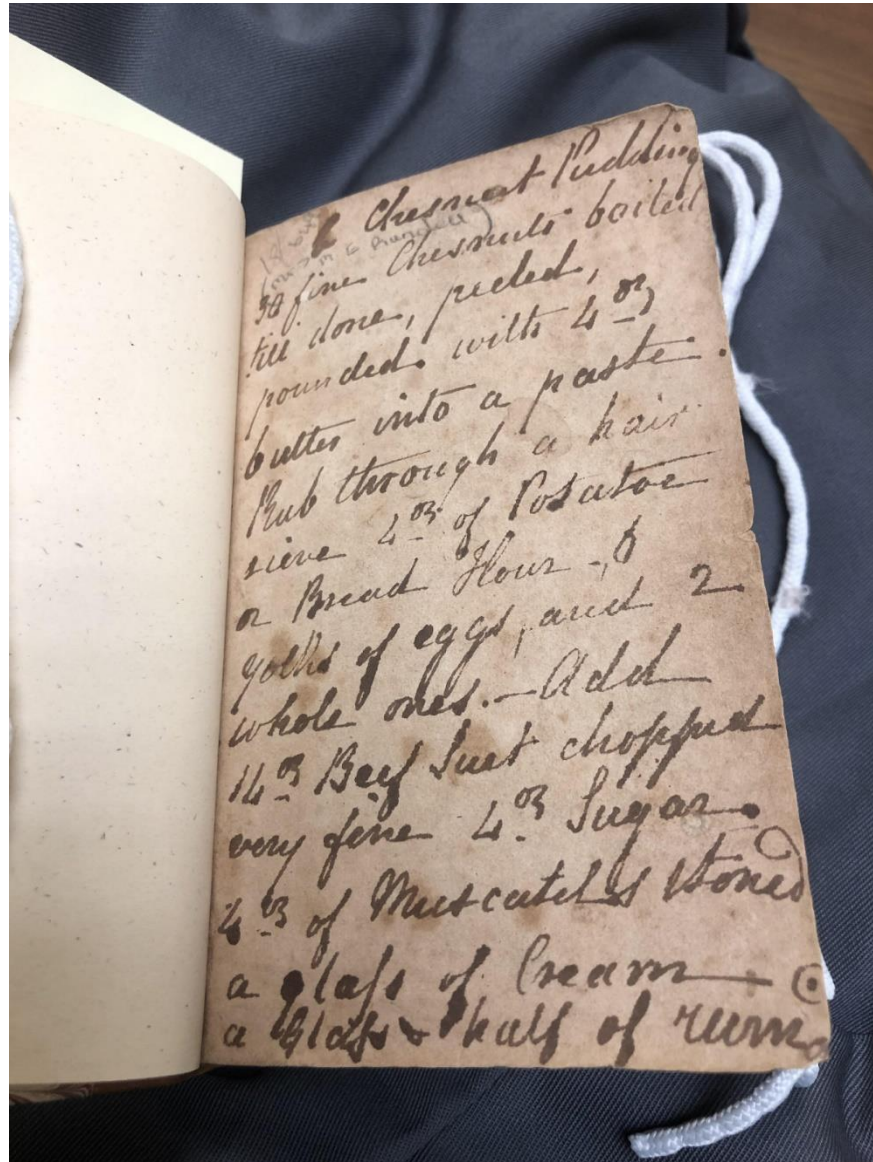 Chesnut Pudding
30 fine Chesnuts boiled
till done, peeled,
pounded with 4 oz
butter into a paste.
Rub through a hair
sieve 4 oz of Potatoe
or Bread Flour -
yolks of eggs, and 2
whole ones. - Add
14 oz Beef Suet chopped
very fine 4 oz Sugar
4 oz of Muscatels stoned
a glass of Cream
a Glass & half of rum